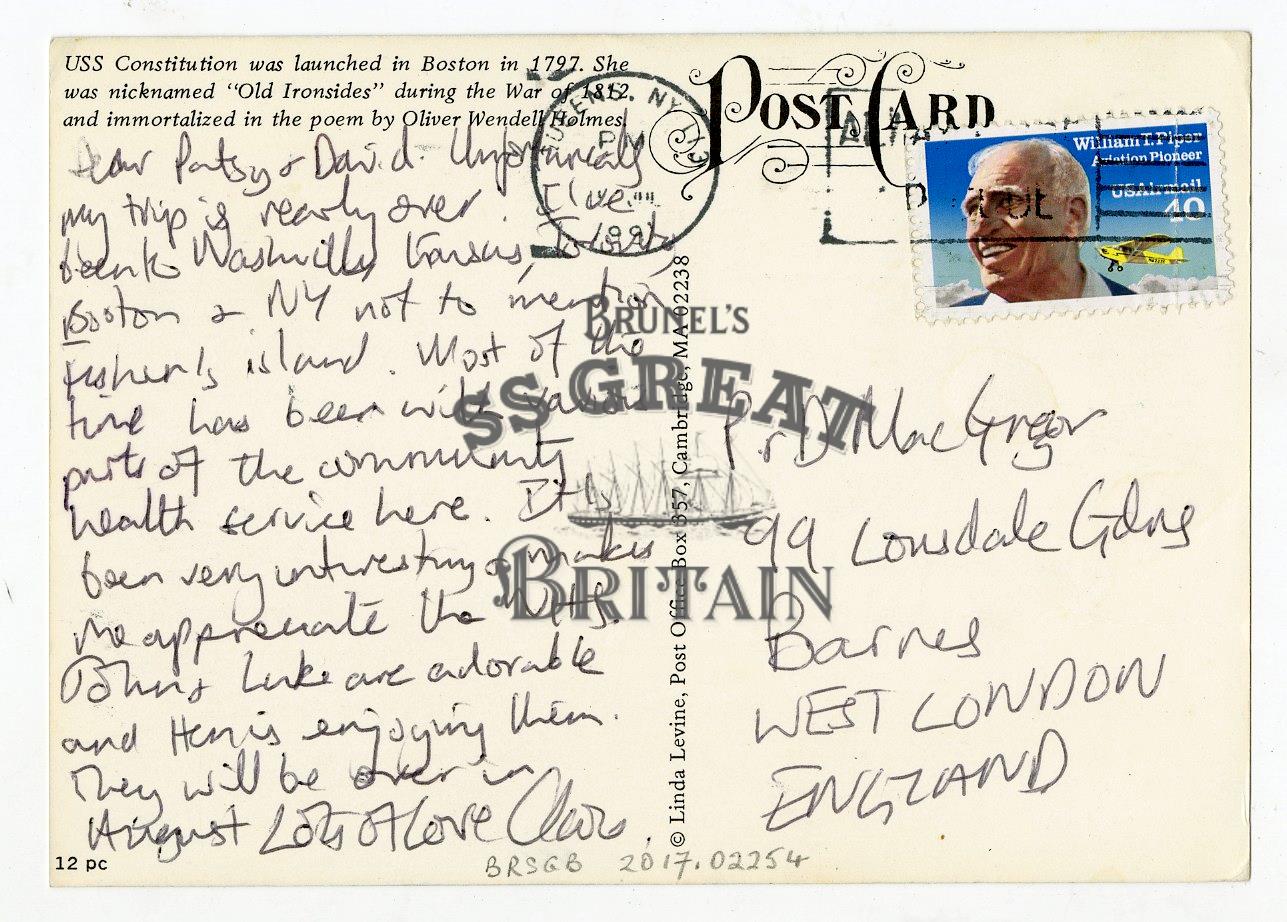 USS Constitution was launched in Boston in 1797. She
was nicknamed "Old Ironsides" during the War of 1812
and immortalized in the poem by Oliver Wendell Holmes.
Dear Patsy & David. Unfortunately
my trip is nearly over. I've
been to Nashville, Kansas,
Boston & NY not to mention
Fisher's island. Most of the
time has been with various
parts of the community
health service here. It is
been very interesting & makes
me appreciate the NHS.
John & Luke are adorable
and Hen is enjoying them.
They will be over in
August Lots of Love
12 pc
© Linda Levine, Post Office Box 357, Cambridge, MA 02238
POST CARD
QUEENS, NY
PM
1991
William T. Piper
Aviation Pioneer
USAirmail
40
P. & D MacGregor
99 Lonsdale Gdns
Barnes
WEST LONDON
ENGLAND
BRUNEL'S
SS GREAT
BRITAIN
BRSGB 2017.02254